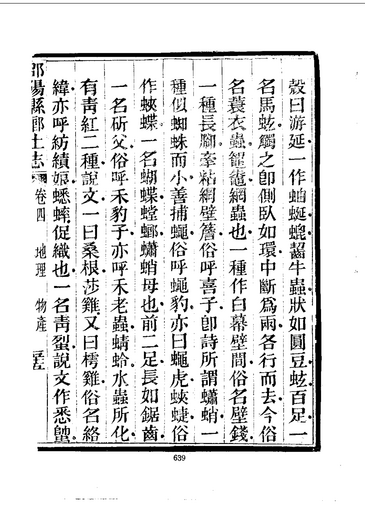 殼曰游延一作蚰蜒螕韶牛蟲狀如圓豆蚿百足一
名馬蚿觸之卽側臥如環中斷爲兩各行而去今俗
名蓑衣蟲鼅鼄網蟲也一種作白幕壁間俗名壁錢
一種長腳牽粘網壁簷俗呼喜子卽詩所謂蠨蛸一
種似蜘蛛而小善捕蠅俗呼蠅豹亦曰蠅虎蛺蜨俗
作蛺蝶一名蝴蝶螳螂蠨蛸母也前二足長如鋸齒
一名斫父俗呼禾豹子亦呼禾老蟲蜻蛉水蟲所化
有靑紅二種說文一曰桑根莎雞又曰樗雞俗名絡
緯亦呼紡績娘蟋蟀促織也一名靑䖵說文作悉𧑓
邵陽縣鄉土志 卷四 地理 物產
639